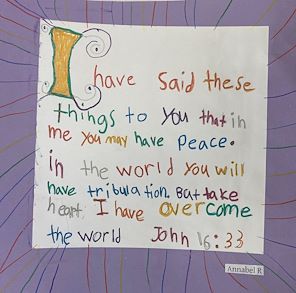 I have said these
things to you that in
me you may have peace.
in the world you will
have tribulation. But take
heart, I have overcome
the world John 16:33
Annabel R